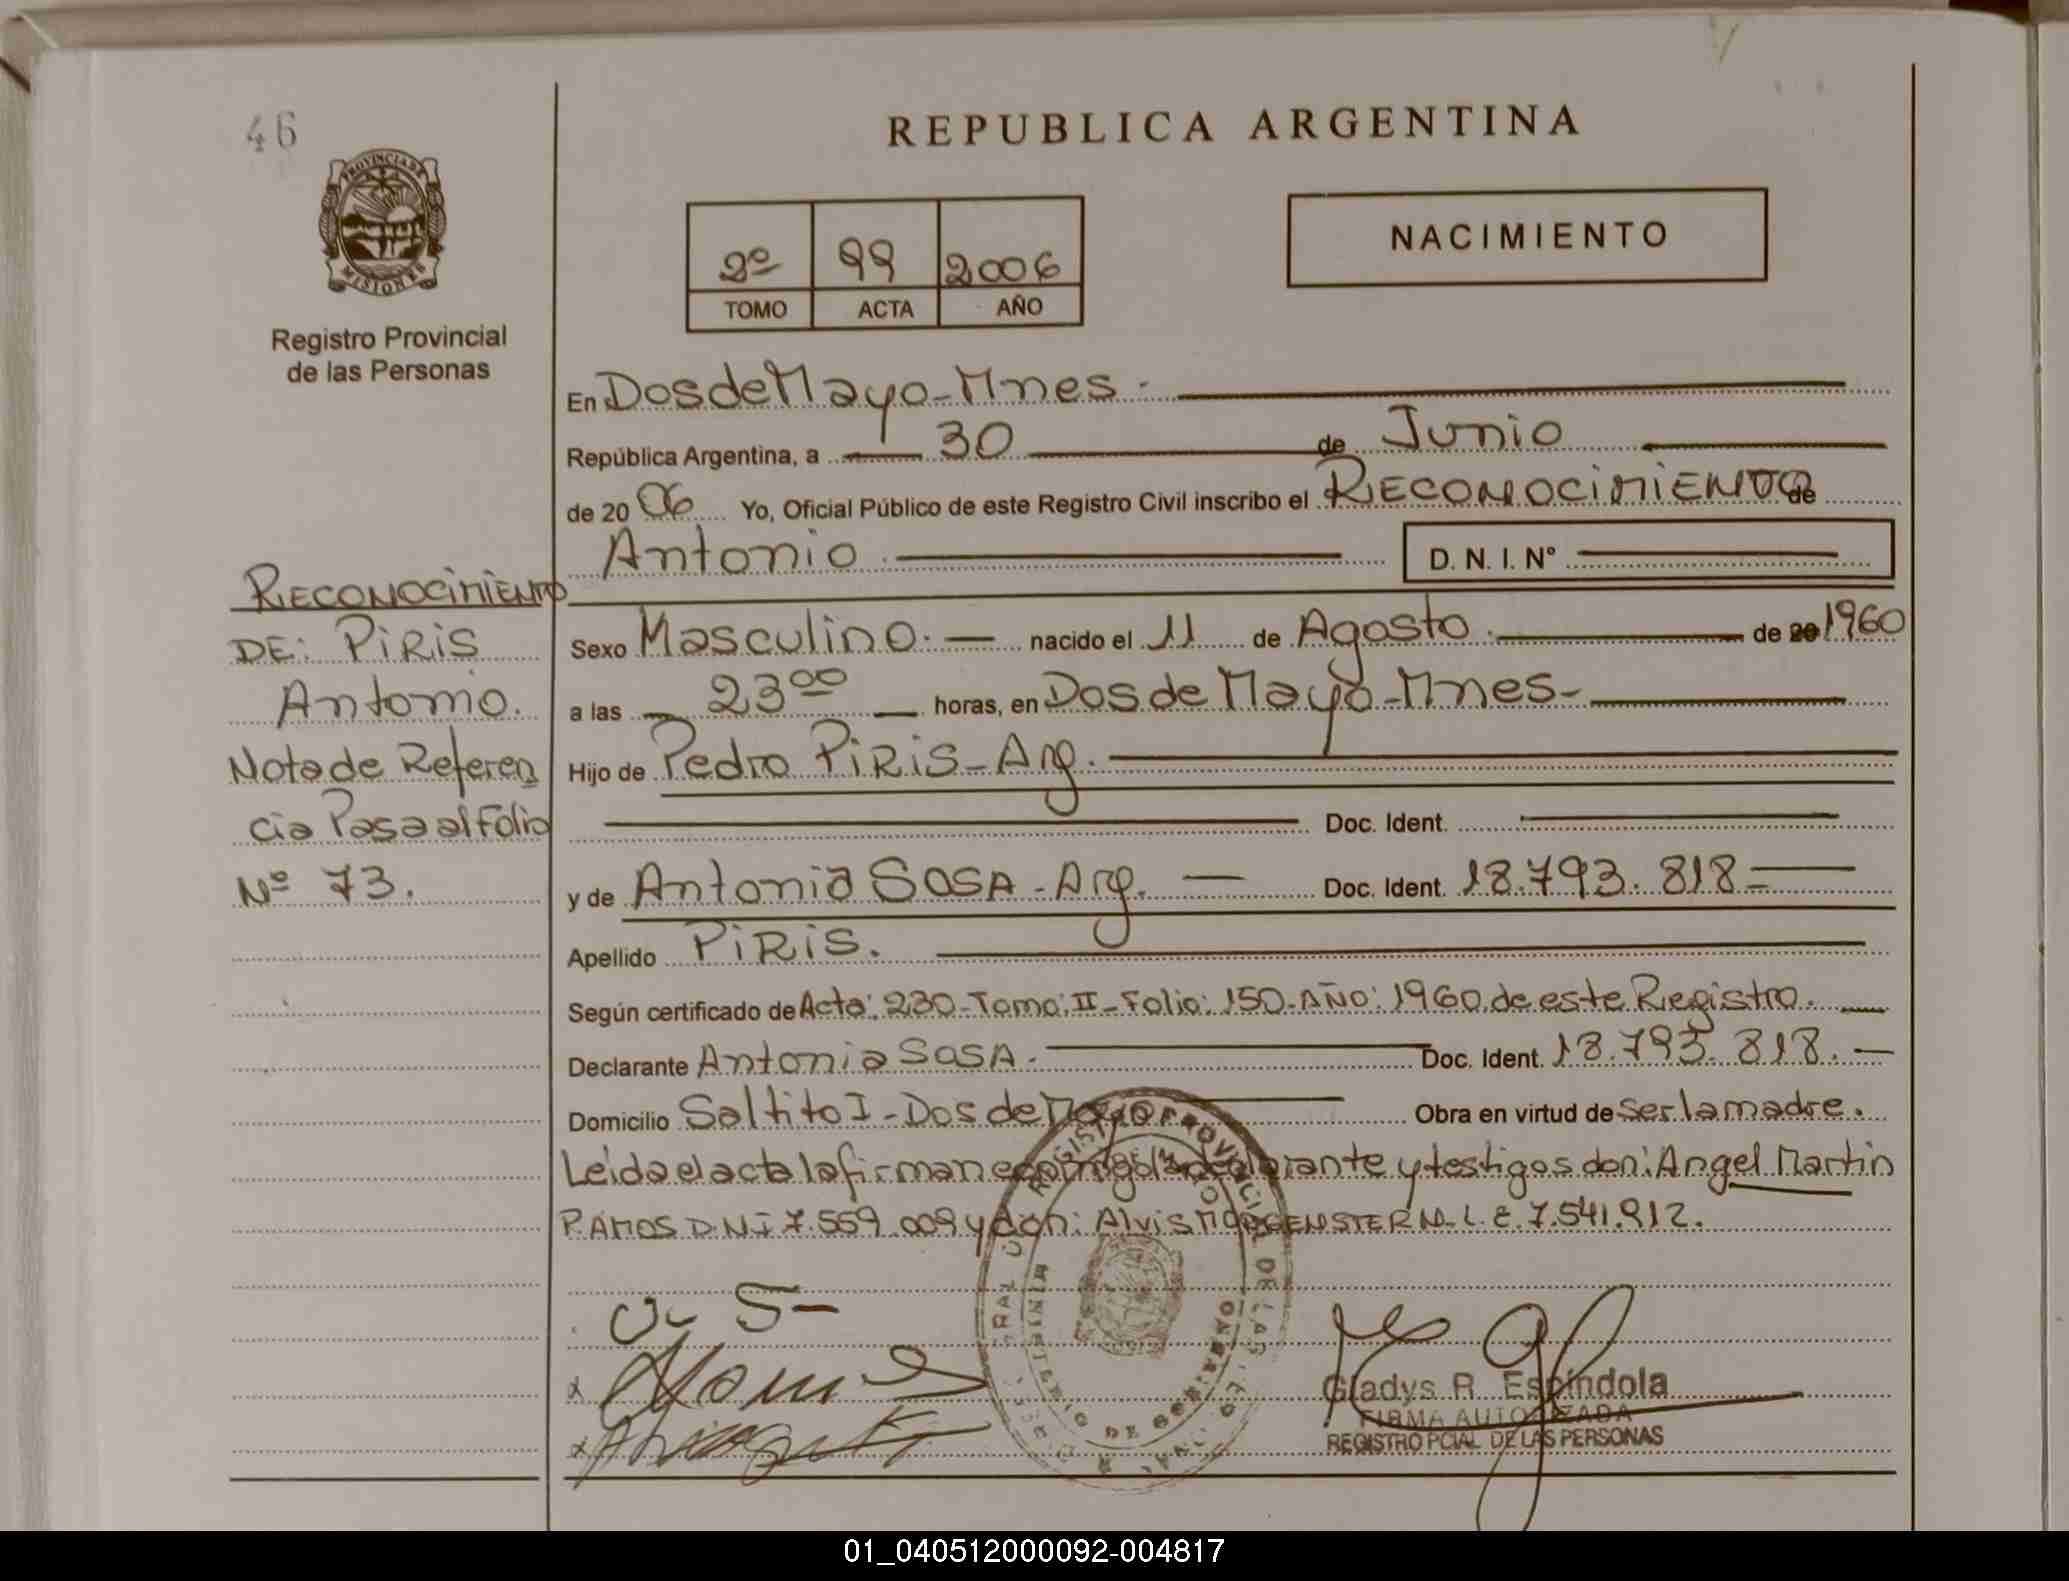 46
REPUBLICA ARGENTINA
PROVINCIA DE
MISIONES
Registro Provincial
de las Personas
2º 99 2006
TOMO ACTA AÑO
NACIMIENTO
En Dos de Mayo - Mnes.
República Argentina, a 30 de Junio
de 2006 Yo, Oficial Público de este Registro Civil inscribo el RECONOCIMIENTO de
Antonio D. N. I. Nº
Sexo Masculino. nacido el 11 de Agosto. de 20 1960
a las 23 00 horas, en Dos de Mayo - Mnes-
Hijo de Pedro PIRIS - Arg.
Doc. Ident.
y de Antonia SOSA - Arg. Doc. Ident. 18.793.818
Apellido PIRIS.
Según certificado de Acta: 230 - Tomo: II - Folio: 150 - AÑO: 1960 de este Registro.
Declarante Antonia SOSA. Doc. Ident. 18.793.818.
Domicilio Saltito I - Dos de Mayo Obra en virtud de ser la madre.
Leída el acta la firman conmigo la declarante y testigos don: Angel Martin
RAMOS D.N.I 7.559.009 y don: Alvis MORGENSTERN - L.E. 7.541.912.
RECONOCIMIENTO
DE: PIRIS
Antonio.
Nota de Referen
cia Pasa al Folio
Nº 73.
Gladys R. Espíndola
FIRMA AUTORIZADA
REGISTRO PCIAL DE LAS PERSONAS
01_040512000092-004817